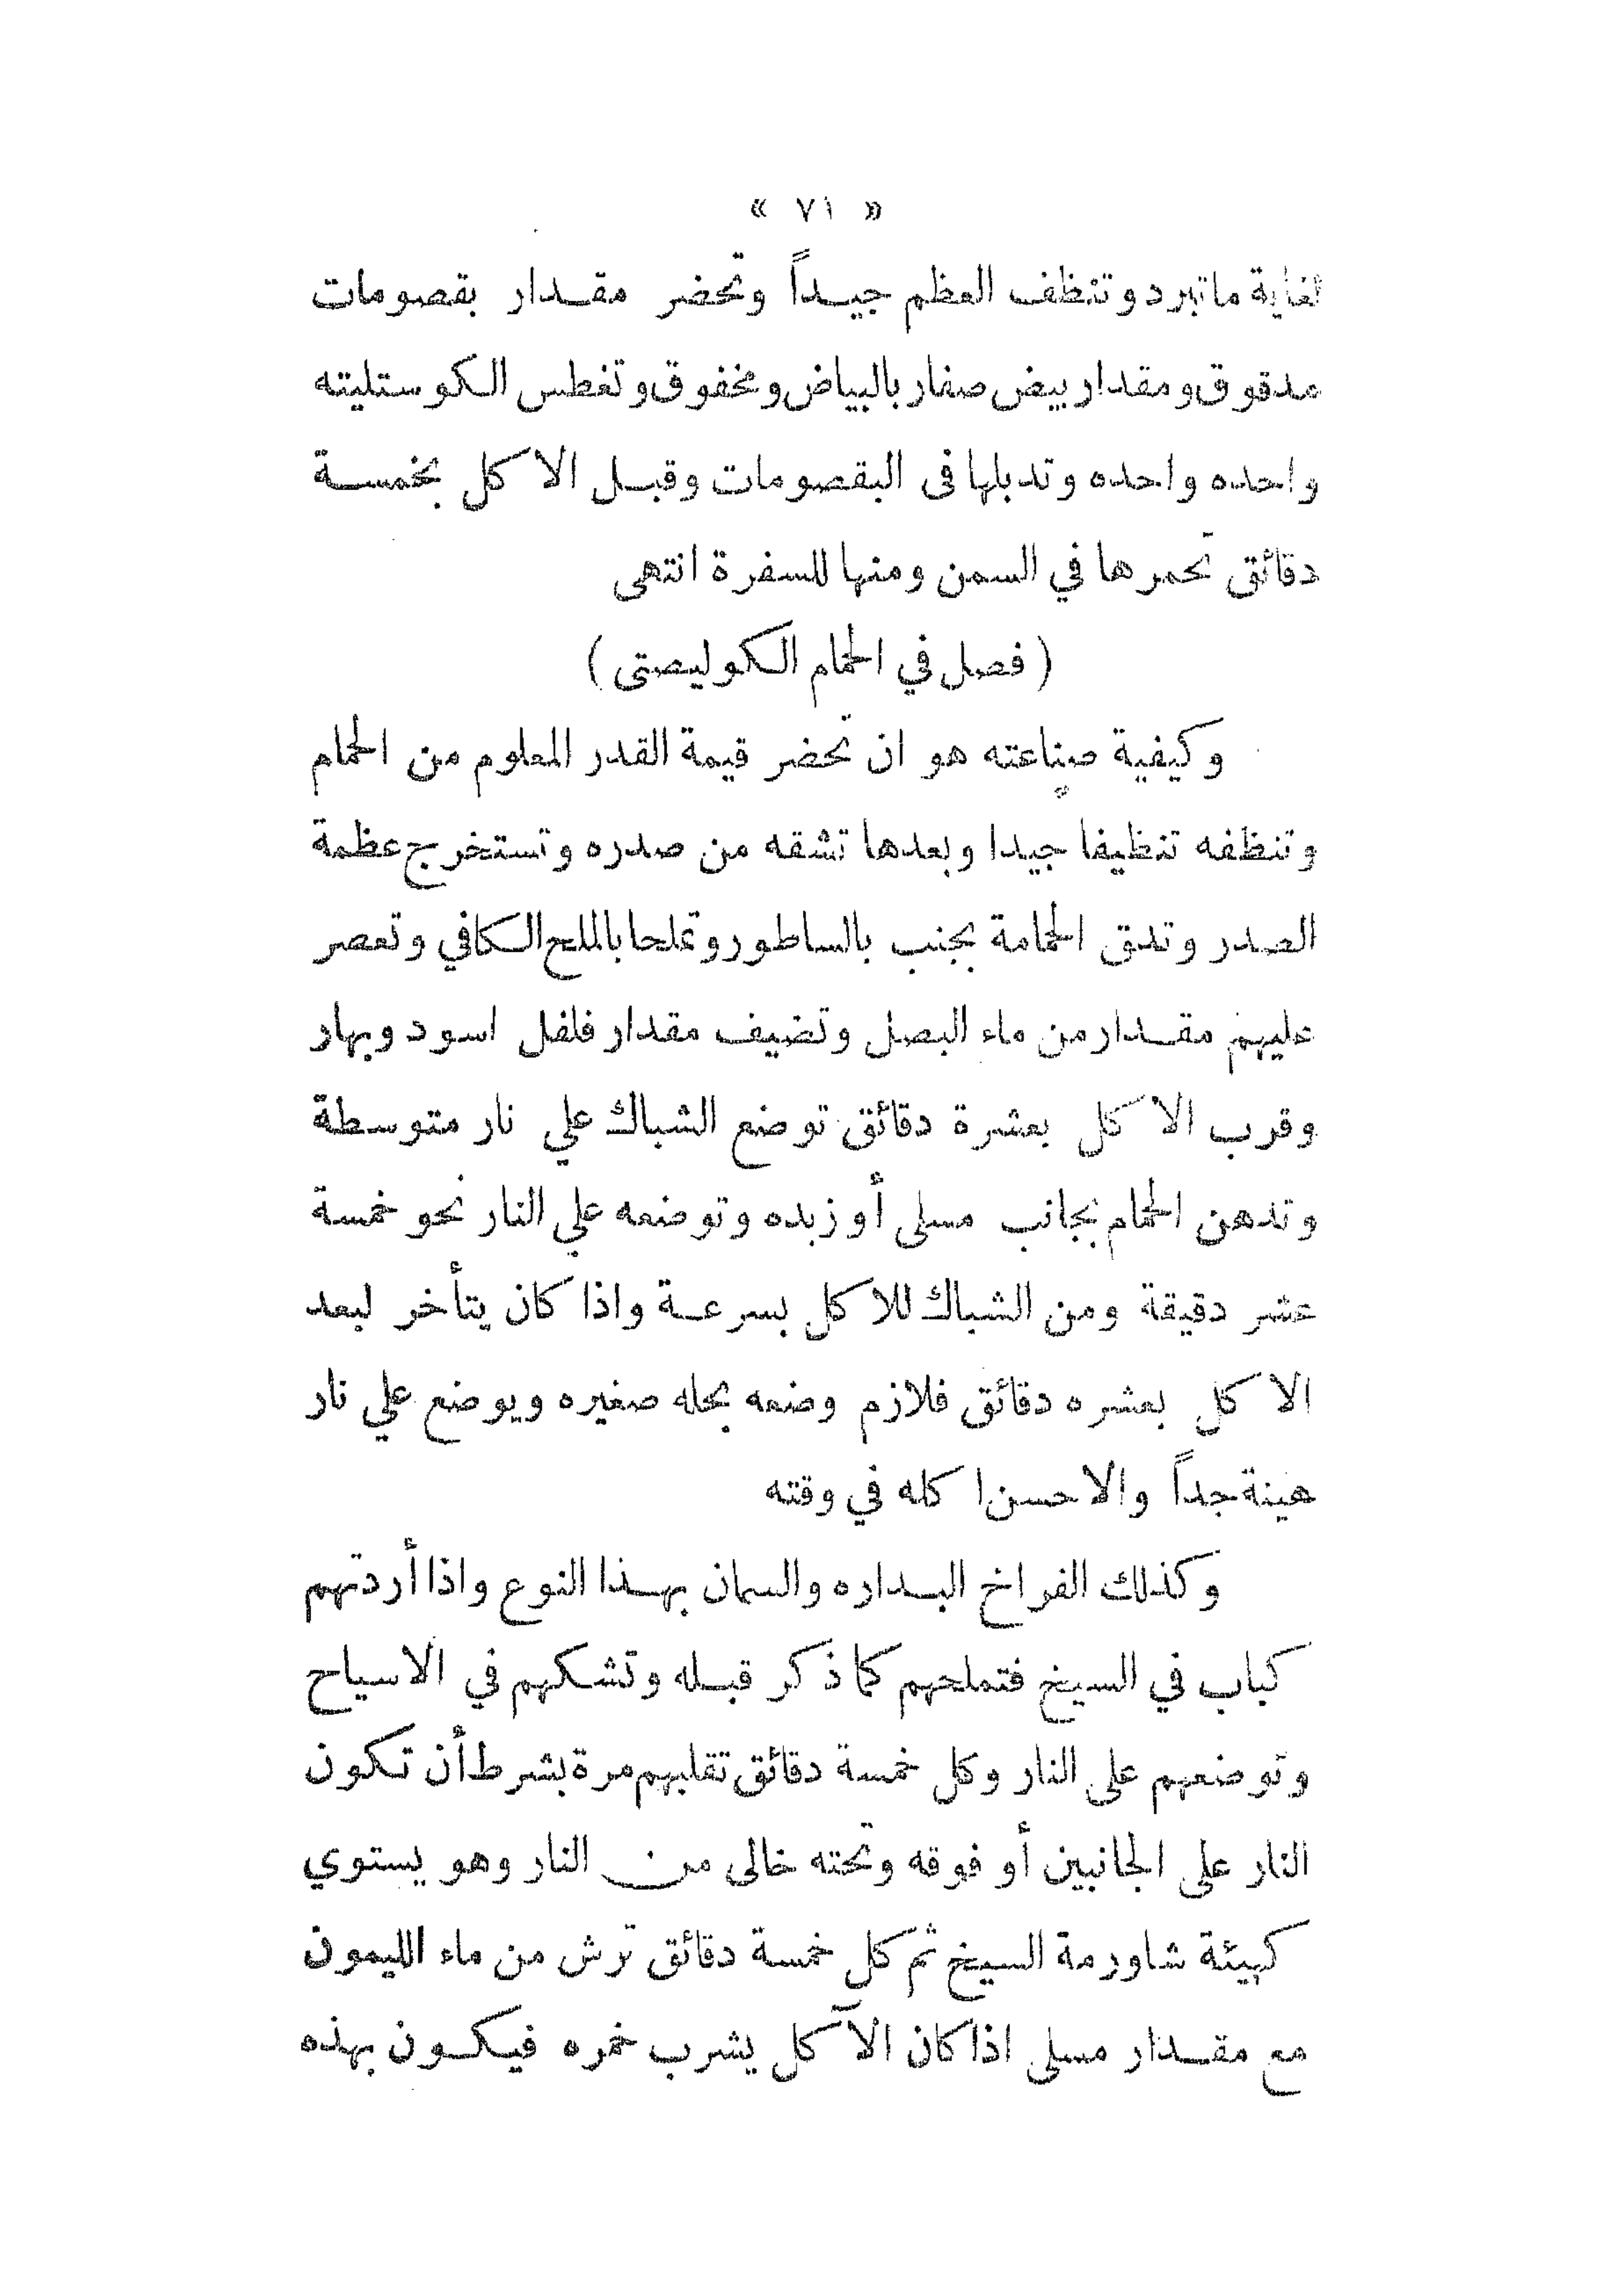 « ٧١ »
لغاية ما تبرد وتنظف العظم جيداً وتحضر مقدار بقصومات
مدقوق ومقدار بيض صفار بالبياض ومخفوق وتغطس الكوستليته
واحده واحده وتدبلها فى البقصومات وقبل الاكل بخمسة
دقائق تحمرها في السمن ومنها للسفرة انتهى
( فصل في الحمام الكوليصتى )
وكيفية صناعته هو ان تحضر قيمة القدر المعلوم من الحمام
وتنظفه تنظيفا جيدا وبعدها تشقه من صدره وتستخرج عظمة
الصدر وتدق الحمامة بجنب بالساطور وتملحا بالملح الكافي وتعصر
عليهم مقدار من ماء البصل وتضيف مقدار فلفل اسود وبهار
وقرب الاكل بعشرة دقائق توضع الشباك علي نار متوسطة
وتدهن الحمام بجانب مسلى أو زبده وتوضعه علي النار نحو خمسة
عشر دقيقة ومن الشباك للاكل بسرعة واذا كان يتأخر لبعد
الاكل بعشره دقائق فلازم وضعه بحله صغيره ويوضع علي نار
هينة جداً والاحسن اكله في وقته
وكذلك الفراخ البداره والسمان بهذا النوع واذا أردتهم
كباب في السيخ فتملحهم كما ذكر قبله وتشكهم في الاسياح
وتوضعهم على النار وكل خمسة دقائق تقلبهم مرة بشرط أن تكون
النار على الجانبين أو فوقه وتحته خالى من النار وهو يستوي
كهيئة شاورمة السيخ ثم كل خمسة دقائق ترش من ماء الليمون
مع مقدار مسلى اذا كان الآكل يشرب خمره فيكون بهذه